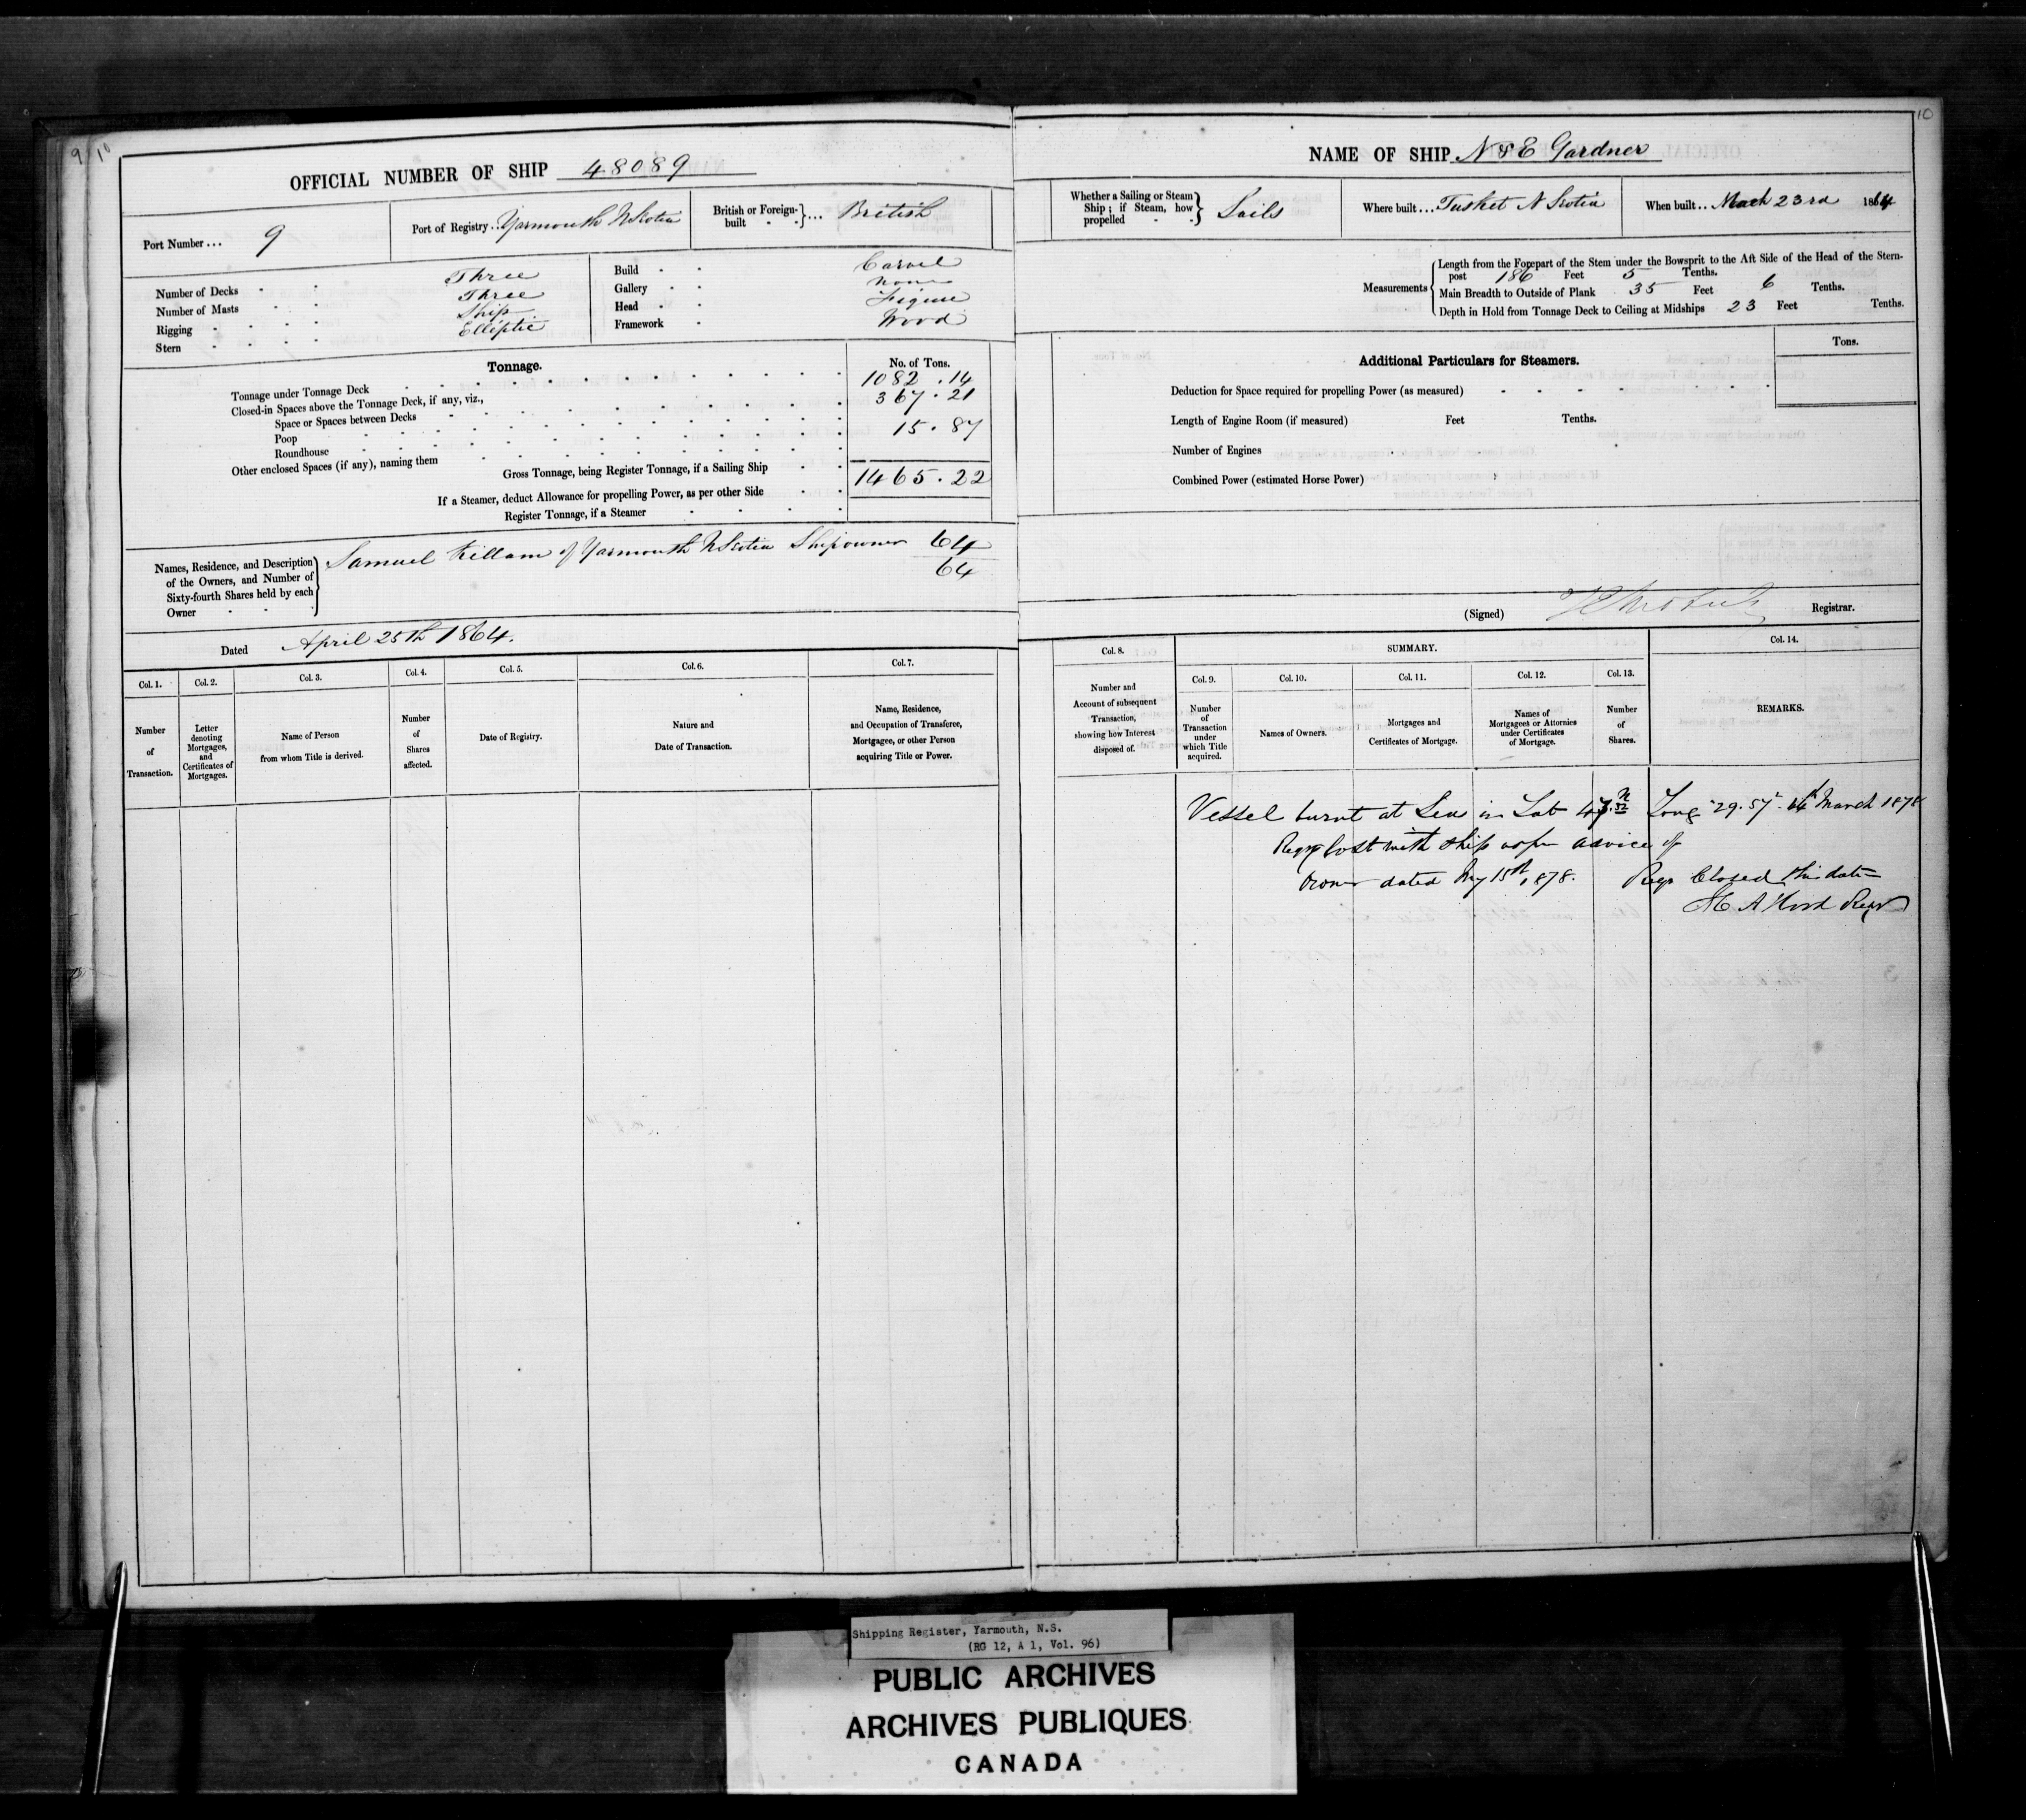 9 10
10
OFFICIAL NUMBER OF SHIP 48089
Port Number... 9
Port of Registry.. Yarmouth NScotia
British or Foreign-built } ... British
Number of Decks - - Three
Number of Masts - - Three
Rigging - - - - Ship
Stern - - - - Elliptic
Build - - Carvel
Gallery - - None
Head - - Figure
Framework - Wood
Tonnage.
No. of Tons.
Tonnage under Tonnage Deck 1082 .14
Closed-in Spaces above the Tonnage Deck, if any, viz.,
Space or Spaces between Decks 367.21
Poop
Roundhouse 15.87
Other enclosed Spaces (if any), naming them
Gross Tonnage, being Register Tonnage, if a Sailing Ship 1465.22
If a Steamer, deduct Allowance for propelling Power, as per other Side
Register Tonnage, if a Steamer
Names, Residence, and Description
of the Owners, and Number of
Sixty-fourth Shares held by each
Owner
Samuel Killam of Yarmouth NScotia Shipowner 64
64
Dated April 25th 1864.
Col. 1. Col. 2. Col. 3. Col. 4. Col. 5. Col. 6. Col. 7.
Number
of
Transaction.
Letter
denoting
Mortgages,
and
Certificates of
Mortgages.
Name of Person
from whom Title is derived.
Number
of
Shares
affected.
Date of Registry.
Nature and
Date of Transaction.
Name, Residence,
and Occupation of Transferee,
Mortgagee, or other Person
acquiring Title or Power.
NAME OF SHIP N & E Gardner
Whether a Sailing or Steam
Ship; if Steam, how
propelled
Sails
Where built... Tusket N Scotia
When built.. March 23rd 1864
Measurements
Length from the Forepart of the Stem under the Bowsprit to the Aft Side of the Head of the Stern-
post 186 Feet 5 Tenths.
Main Breadth to Outside of Plank 35 Feet 6 Tenths.
Depth in Hold from Tonnage Deck to Ceiling at Midships 23 Feet Tenths.
Additional Particulars for Steamers.
Tons.
Deduction for Space required for propelling Power (as measured)
Length of Engine Room (if measured) Feet Tenths.
Number of Engines
Combined Power (estimated Horse Power)
(Signed) Registrar.
Col. 8.
SUMMARY.
Col. 14.
Col. 9. Col. 10. Col. 11. Col. 12. Col. 13.
Number and
Account of subsequent
Transaction,
showing how Interest
disposed of.
Number
of
Transaction
under
which Title
acquired.
Names of Owners.
Mortgages and
Certificates of Mortgage.
Names of
Mortgagees or Attornies
under Certificates
of Mortgage.
Number
of
Shares.
REMARKS.
Vessel burnt at Sea in Lat Long 29.57 March 1878
lost with ship as per advice of
Owner dated 15th 1878. Closed this date
Regr
Shipping Register, Yarmouth, N.S.
(RG 12, A 1, Vol. 96)
PUBLIC ARCHIVES
ARCHIVES PUBLIQUES
CANADA